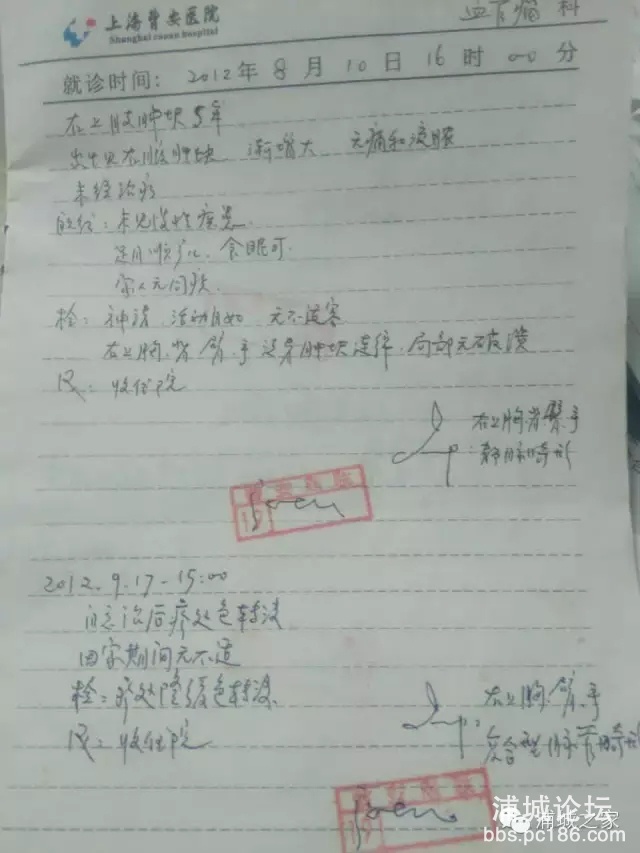 上海曾安医院
Shanghai cenan hospital
血管瘤 科
就诊时间: 2012 年 8 月 10 日 16 时 00 分
右上肢肿块5年
出生见右肢肿块 渐增大 无痛和溃脓
未经治疗
既经:未见慢性症患
足月顺产儿、食眠可.
家人无同疾.
检:神清,活动自如,无不适容
右上胸.背.臂.手 肿块连绵,局部无破溃
收住院
右上胸背臂手
静脉畸形
2012.9.17-15:00
治后 处色转淡
回家期间无不适
检: 处 缓色转淡
收住院
右上胸.臂.手
混合型脉管畸形
浦城论坛
浦城之家
bbs.pc186.com